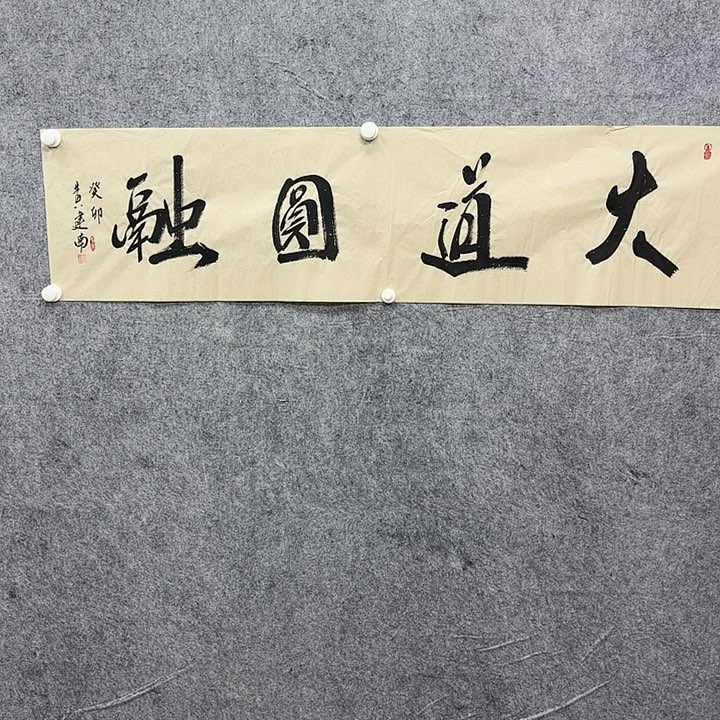 大道圓融
癸卯
黄建南